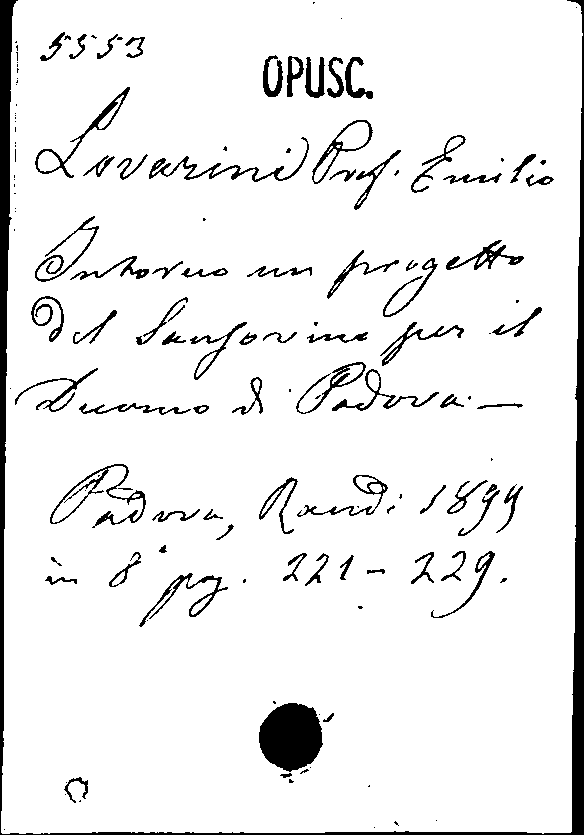 5553
OPUSC.
Lovarini Prof. Emilio
Intorno un progetto
del Sansovino per il
Duomo di Padova. —
Padova, Randi 1899
in 8° pag. 221 - 229.